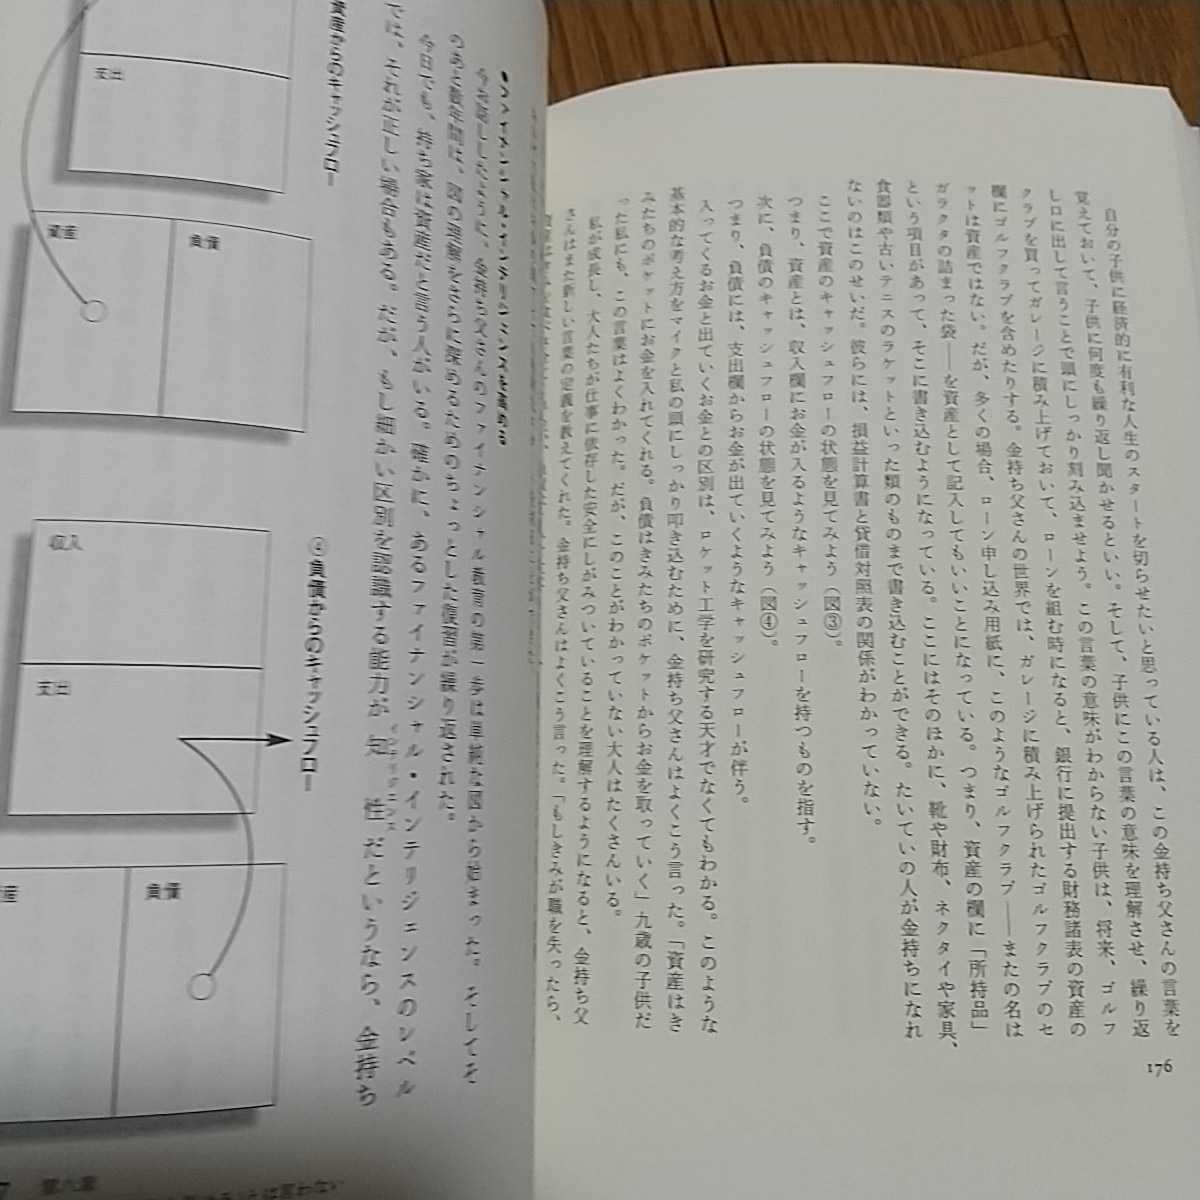 自分の子供に経済的に有利な人生のスタートを切らせたいと思っている人は、この金持ち父さんの言葉を
覚えておいて、子供に何度も繰り返し聞かせるといい。そして、子供にこの言葉の意味を理解させ、繰り返
し口に出して言うことで頭にしっかり刻み込ませよう。この言葉の意味がわからない子供は、将来、ゴルフ
クラブを買ってガレージに積み上げておいて、ローンを組む時になると、銀行に提出する財務諸表の資産の
欄にゴルフクラブを含めたりする。金持ち父さんの世界では、ガレージに積み上げられたゴルフクラブのセ
ットは資産ではない。だが、多くの場合、ローン申し込み用紙に、このようなゴルフクラブ——またの名は
ガラクタの詰まった袋——を資産として記入してもいいことになっている。つまり、資産の欄に「所持品」
という項目があって、そこに書き込むようになっている。ここにはそのほかに、靴や財布、ネクタイや家具、
食器類や古いテニスのラケットといった類のものまで書き込むことができる。たいていの人が金持ちになれ
ないのはこのせいだ。彼らには、損益計算書と貸借対照表の関係がわかっていない。
ここで資産のキャッシュフローの状態を見てみよう（図③）。
つまり、資産とは、収入欄にお金が入るようなキャッシュフローを持つものを指す。
次に、負債のキャッシュフローの状態を見てみよう（図④）。
つまり、負債には、支出欄からお金が出ていくようなキャッシュフローが伴う。
入ってくるお金と出ていくお金との区別は、ロケット工学を研究する天才でなくてもわかる。このような
基本的な考え方をマイクと私の頭にしっかり叩き込むために、金持ち父さんはよくこう言った。「資産はき
みたちのポケットにお金を入れてくれる。負債はきみたちのポケットからお金を取っていく」九歳の子供だ
った私にも、この言葉はよくわかった。だが、このことがわかっていない大人はたくさんいる。
私が成長し、大人たちが仕事に依存した安全にしがみついていることを理解するようになると、金持ち父
さんはまた新しい言葉の定義を教えてくれた。金持ち父さんはよくこう言った。「もしきみが職を失ったら、
176
●ファイナンシャル・インテリジェンスを高める
今お話ししたように、金持ち父さんのファイナンシャル教育の第一歩は単純な図から始まった。そしてそ
のあと数年間は、図の理解をさらに深めるためのちょっとした復習が繰り返された。
今日でも、持ち家は資産だと言う人がいる。確かに、あるファイナンシャル・インテリジェンスのレベル
では、それが正しい場合もある。だが、もし細かい区別を認識する能力が知性だというなら、金持ち
インテリジェンス
資産からのキャッシュフロー
支出
資産
負債
④負債からのキャッシュフロー
収入
支出
産
負債
7
第八章